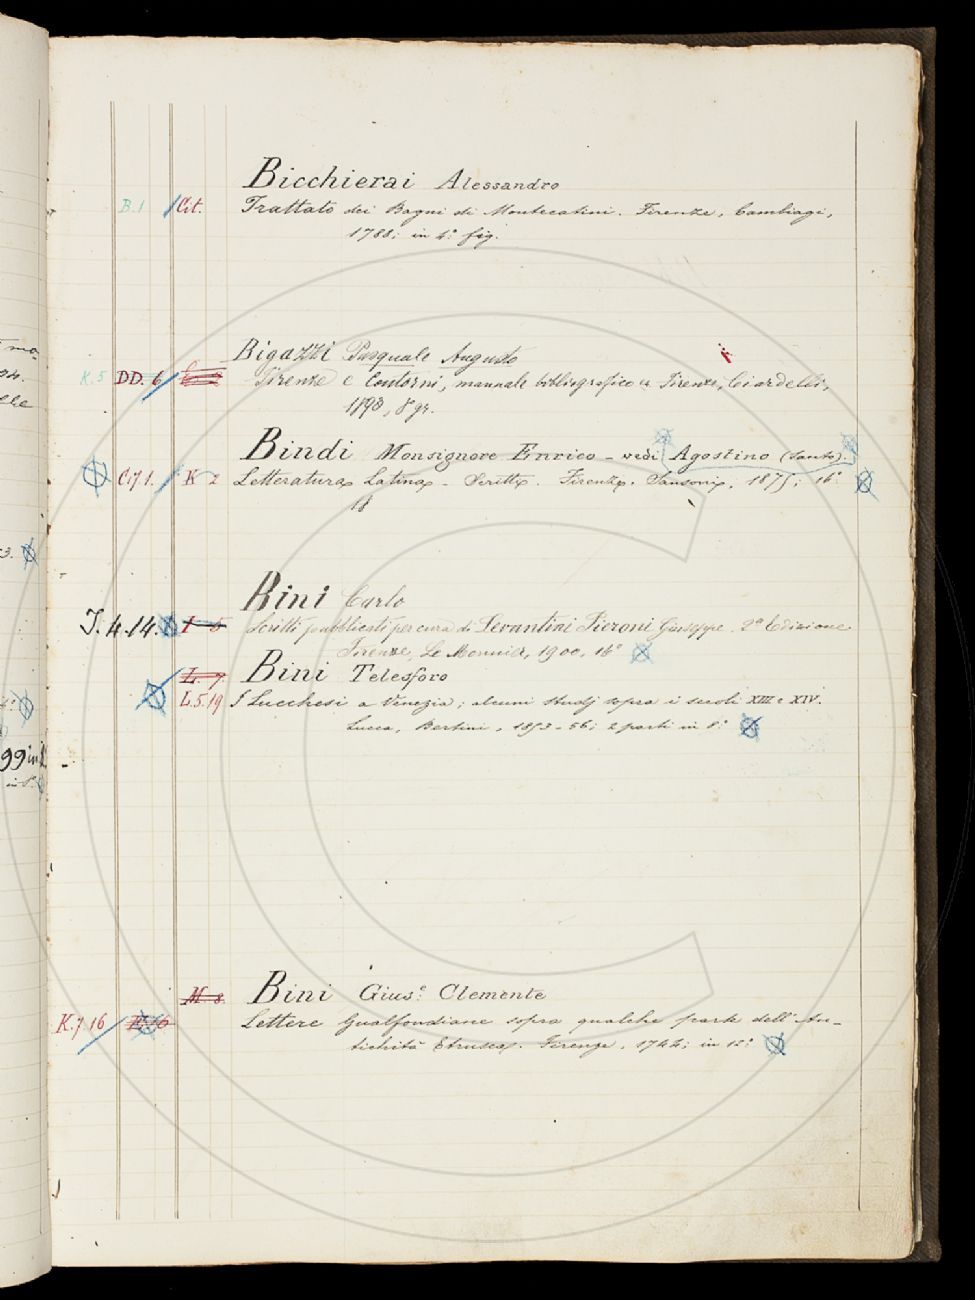 Bicchierai Alessandro
B.1 Cit. Trattato dei Bagni di Montecatini. Firenze, Cambiagi,
1788; in 4.° fig.
Bigazzi Pasquale Augusto
K.5 DD. 6 Firenze e Contorni, manuale bibliografico Firenze, Ciardelli,
1893, 8 gr.
Bindi Monsignore Enrico - vedi Agostino (Santo).
K 2 Letteratura Latina - Scritti. Firenze, Sansoni, 1875; 16°
Bini Carlo
I.4.14. Scritti pubblicati per cura di Levantini Pieroni Giuseppe. 2ª Edizione
Firenze, Le Monnier, 1900, 16°
L. 7. Bini Telesforo
L.5.19 I Lucchesi a Venezia; alcuni studj sopra i secoli XIII e XIV.
Lucca, Bertini, 1853-56; 2 parti in 8.°
M. 8. Bini Gius.e Clemente
K.7.16 Lettere Gualfondiane sopra qualche parte dell' An-
tichità Etrusca. Firenze, 1744; in 12.°